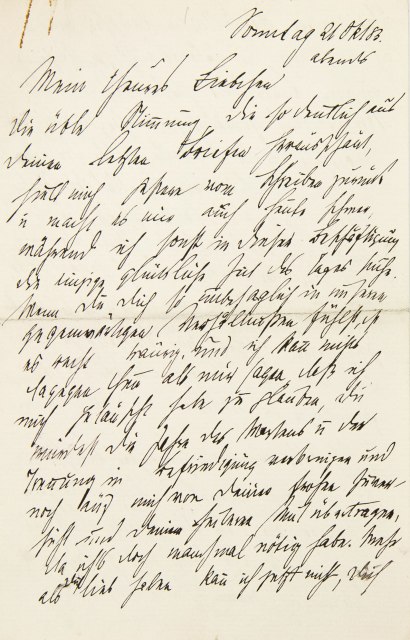 Sonntag 21 Okt 83.
abends
Mein theures Liebchen
die üble Stimmung die so deutlich aus
deinen letzten Briefen herausschaut,
hielt mich gestern vom Schreiben zurück
u macht es mir auch heute schwer,
während ich sonst in dieser Beschäftigung
die einzige glückliche Zeit des Tages sehe.
Wenn Du Dich so unbehaglich in unseren
gegenwärtigen Verhältnissen fühlst, ist
es recht traurig, und ich kann nichts
dagegen thun als mir sagen, daß ich
mich getäuscht habe zu glauben, du
würdest die Jahre des Wartens u der
Trennung in Befriedigung verbringen und
noch auf mich von Deiner frohen
und Deinen heiteren Mut übertragen,
da ichs doch manchmal nötig habe. Mehr
als Dich lieb haben kann ich jetzt nicht,